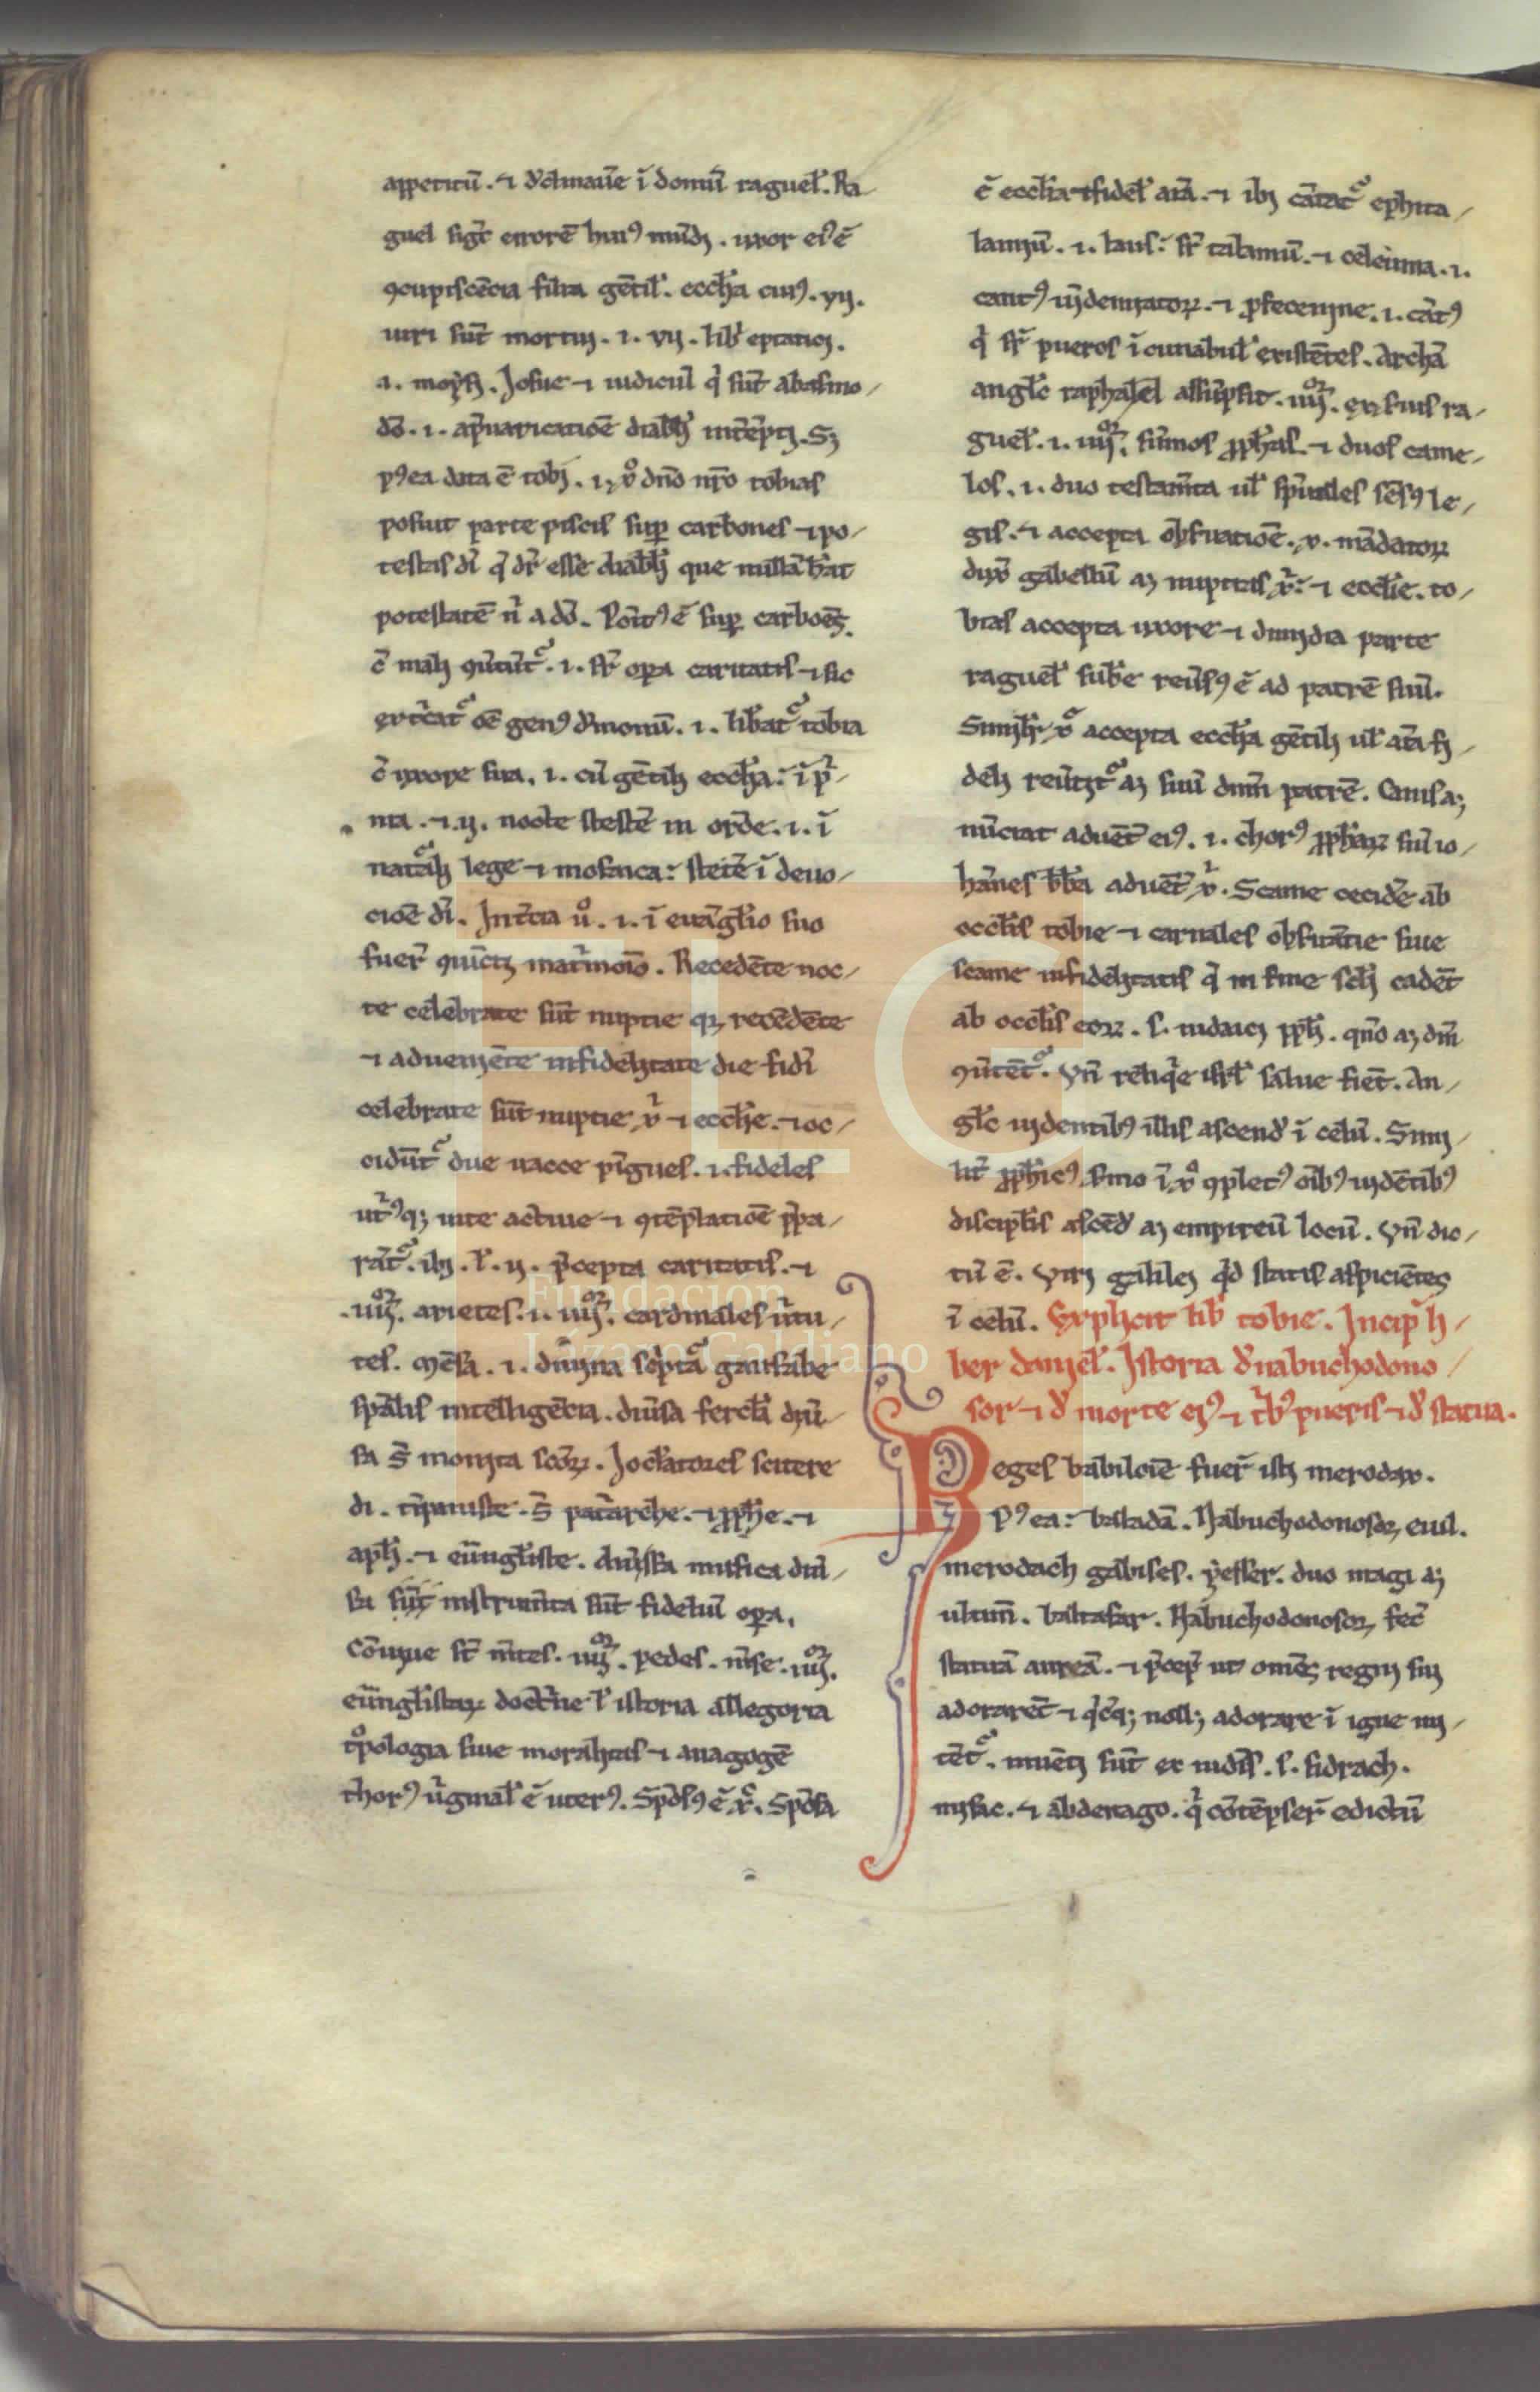 appetitū. ⁊ d̾clinauē ĩ domū raguel̾. Ra
guel sigᷓt errorē huiꝰ mūdi. uxor ei̾ ē
ꝯcupiscēcia filia gētil̾. eccl̾ia cuiꝰ. vij.
uiri sūt mortui. .i. vij. lib̾ eptatici.
.i. moysi. Josue ⁊ iudicūl q̾ sūt ab asmo
dō. .i. a p̃uaricatiōe diabl̾i int̾ēpti. Sȝ
pꝰea data ē tobi. .i. x̾o dn̄o nr̄o tobias
posuit parte piscis suꝑ carbones ⁊ po
testas di̾ q̾ dr̄ esse diabl̾i que nullā h̾at
potestatē n̾ a dō. Poit̾ꝰ ē suꝑ carboēs.
ꝯu̾tūt̾. .i. sr̄ oꝑa caritatis ⁊ sic
ext̾cat̾ oē genꝰ d̾monū. .i. lib̾at̾ tobia
c̄ uxore sua. .i. cū gētili eccl̾ia: ĩ p̾
ma. ⁊ .ij. nocte stestē in ord̾e. .i. ĩ
nat̾ali lege ⁊ mosaica: stetē ĩ deuo
cioē di̾. Jnt̾cia u̾o. .i. ĩ euāgl̾io suo
fuer̄ ꝯiūcti mat̾moīo. Recedēte noc
te celebrate sūt nuptie qȝ recedēte
⁊ adueniēte infidelitate die fidi̾
celebrate sūt nuptie x̾ ⁊ eccl̾ie. ⁊ oc
cidūt̾ due uacce pīgues. .i. fideles
ut̾ꝰqȝ uite actiue ⁊ ꝯtēplatioē p̾pa
rāt̾. ibi. l̾. ij. p̾cepta caritatis. ⁊
.iiijor. arietes. .i. iiijor. cardinales u̾tu
tes. Mēsa. .i. diuina sc̾pta gaufabe
sp̄alis intelligēcia. diu̾sa fercl̾a diū
sa s̄ monita scōꝝ. Joclatores scitere
di. tīpaniste. s̄ pat̾arche. ⁊ ꝓph̾e. ⁊
apl̾i. ⁊ eūngl̾iste. diu̾sa musica diū
sa sūt instrum̄ta sūt fideliū oꝑa.
Cōuiue sr̄ m̄tes. iiijor. pedes. m̄se. iiijor.
eūngl̾istaꝝ doct̾ne l̾ istoria allegoria
t̾pologia siue moralitas ⁊ anagogē
chorꝰ u̾ginal̾ ē uterꝰ. Spōsꝰ ē x̾. Spōsa
ē eccl̾ia ⁊ fidel̾ aīa. ⁊ ibi cātat̾ ephita
lamiū. .i. laus: sr̄ talamū. ⁊ celeuma. .i.
cantꝰ uīdemiatoꝝ. ⁊ ꝓfecenine. .i. cātꝰ
q̾ sr̄ pueros ĩ cunabul̾ existētes. Archā
angl̾c raphaēl assūpsit. iiijor. ex suis ra
guel̾. .i. iiijor. sūmos ꝓph̾as ⁊ duos came
los. .i. duo testam̄ta ul̾ sp̄uales sēsꝰ le
gis. ⁊ accepta obs̾uatioē. x. mādatoꝝ
dux̾ gabelū aȝ nuptias x̾: ⁊ eccl̾ie. to
bias accepta uxore ⁊ dimidia parte
raguel̾ sub̾e reu̾sꝰ ē ad patrē suū.
Simil̾r x̾o accepta eccl̾ia gētili ul̾ aīa fi
deli reu̾tit̾ aȝ suū dūm patrē. Canis aȝ
nūciat aduēt̾ eiꝰ. .i. chorꝰ ꝓph̾aꝝ siū io
hānes bb̾a aduēt̾ x̾. Scame cecid̾e ab
occl̾is tobie ⁊ carnales obs̾uātie siue
scame infidelitatis q̾ in fine scl̾i cadēt
ab occl̾is eoꝝ. s. iudaici ppl̾i. qn̄o aȝ dn̄m
ꝯu̾tēt̾. Vn̄ reliq̾e isrl̾ salue fiēt. An
gl̾c uidentibꝰ illis ascend̾ ĩ celū. Simi
lit̾ ꝓph̾icꝰ s̾mo ĩ x̾o ꝯpletꝰ oībꝰ uidētibꝰ
discipl̾is ascēd̾ aȝ empireū locū. Vn̄ dic
tū ē. Viri galilei q̾d statis aspiciētes
ĩ celū. Explicit lib̾ tobie. Jncip̾ li
ber daniel̾. Jstoria d̾ nabuchodono
sor ⁊ d̾ morte eiꝰ ⁊ t̾bꝰ pueris ⁊ d̾ statua.
Reges babiloīe fuer̄ isti merodax.
Pꝰea: baladā. Nabuchodonosor, euil.
merodach gabises. yesser. duo magi aȝ
ultim̄. baltasar. Nabuchodonosor, fec̾
statuā aureā. ⁊ p̾cep̾ ut omēs regni sui
adorarēt ⁊ q̾cqȝ nollȝ adorare ĩ igne mi
tēt̾. inuēti sūt ex iudīs. s. sidrach.
misac. ⁊ abdenago. q̾ cōtēpser̄ edictū
Fundación
Lázaro Galdiano